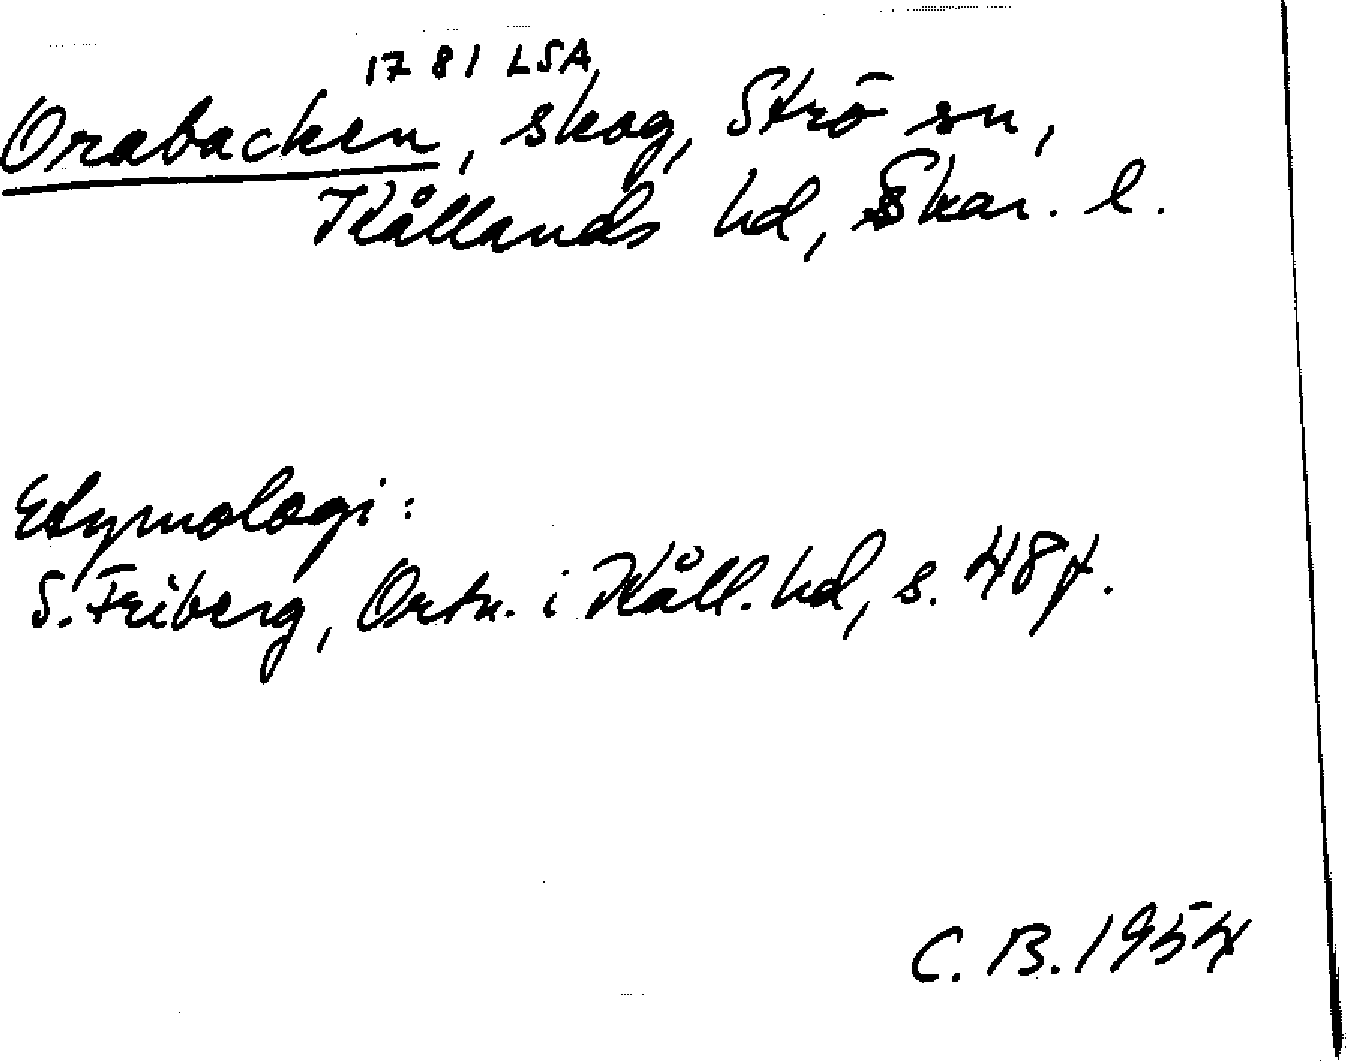 1781 LSA
Orabacken, skog, Strö sn,
Kållands hd, Skar. l.
Etymologi:
S. Friberg, Ortn. i Kåll. hd, s. 48 f.
C. B. 1954